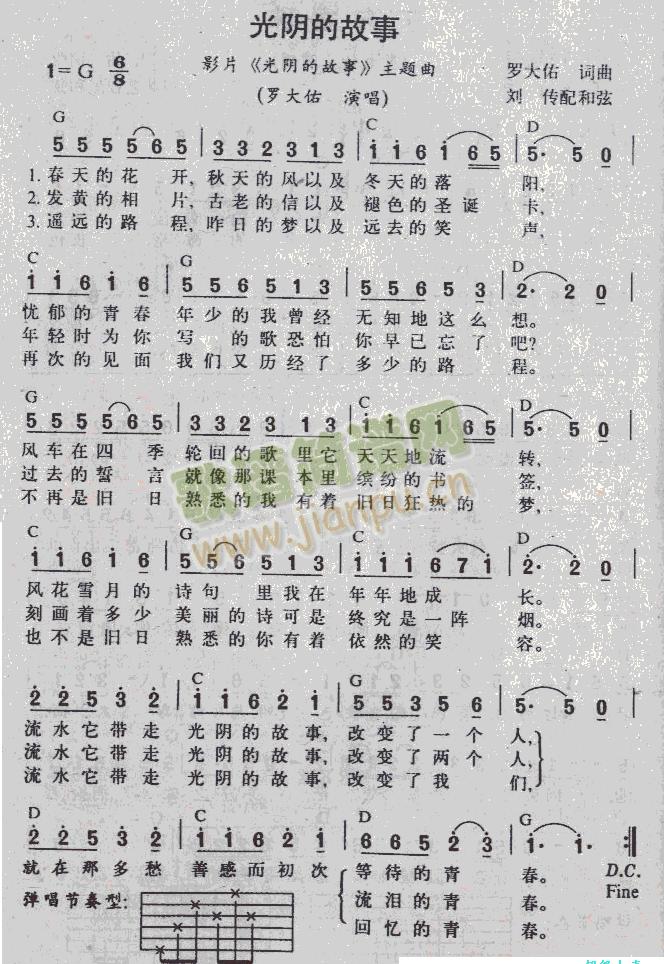 光阴的故事
1=G 6/8
影片《光阴的故事》主题曲
(罗大佑 演唱)
罗大佑 词曲
刘 传配和弦
G C D
5 5 5 5 6 5 | 3 3 2 3 1 3 | i i 6 i 6 5 | 5· 5 0 |
1. 春天的花 开, 秋天的风以及 冬天的落 阳,
2. 发黄的相 片, 古老的信以及 褪色的圣诞 卡,
3. 遥远的路 程, 昨日的梦以及 远去的笑 声,
C G D
i i 6 i 6 | 5 5 6 5 1 3 | 5 5 6 5 3 | 2· 2 0 |
忧郁的青春 年少的我曾经 无知地这么 想。
年轻时为你 写 的歌恐怕 你早已忘了 吧?
再次的见面 我们又历经了 多少的路 程。
G C D
5 5 5 5 6 5 | 3 3 2 3 1 3 | i i 6 i 6 5 | 5· 5 0 |
风车在四 季 轮回的歌 里它 天天地流 转,
过去的誓 言 就像那课 本里 缤纷的书 签,
不再是旧 日 熟悉的我 有着 旧日狂热的 梦,
歌谱简谱网
www.jianpu.cn
C G C D
i i 6 i 6 | 5 5 6 5 1 3 | i i i 6 7 i | 2· 2 0 |
风花雪月的 诗句 里我在 年年地成 长。
刻画着多少 美丽的诗可是 终究是一阵 烟。
也不是旧日 熟悉的你有着 依然的笑 容。
D C G
2 2 5 3 2 | i i 6 2 i | 5 5 3 5 6 | 5· 5 0 |
流水它带走 光阴的故事, 改变了一个 人,
流水它带走 光阴的故事, 改变了两个 人,
流水它带走 光阴的故事, 改变了我 们,
D C D G
2 2 5 3 2 | i i 6 2 i | 6 6 5 2 3 | i· i· :‖
就在那多愁 善感而初次 等待的青 春。 D.C.
弹唱节奏型: 流泪的青 春。 Fine
回忆的青 春。